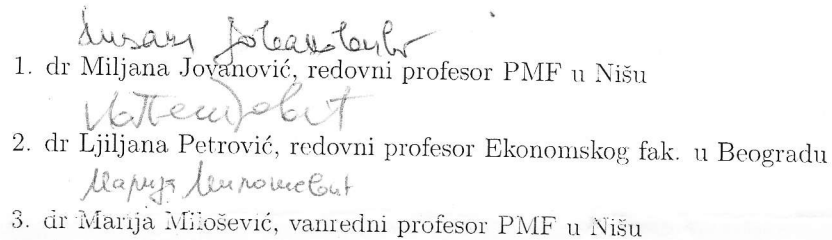 1. dr Miljana Jovanović, redovni profesor PMF u Nišu
2. dr Ljiljana Petrović, redovni profesor Ekonomskog fak. u Beogradu
Марија Милошевић
3. dr Marija Milošević, vanredni profesor PMF u Nišu